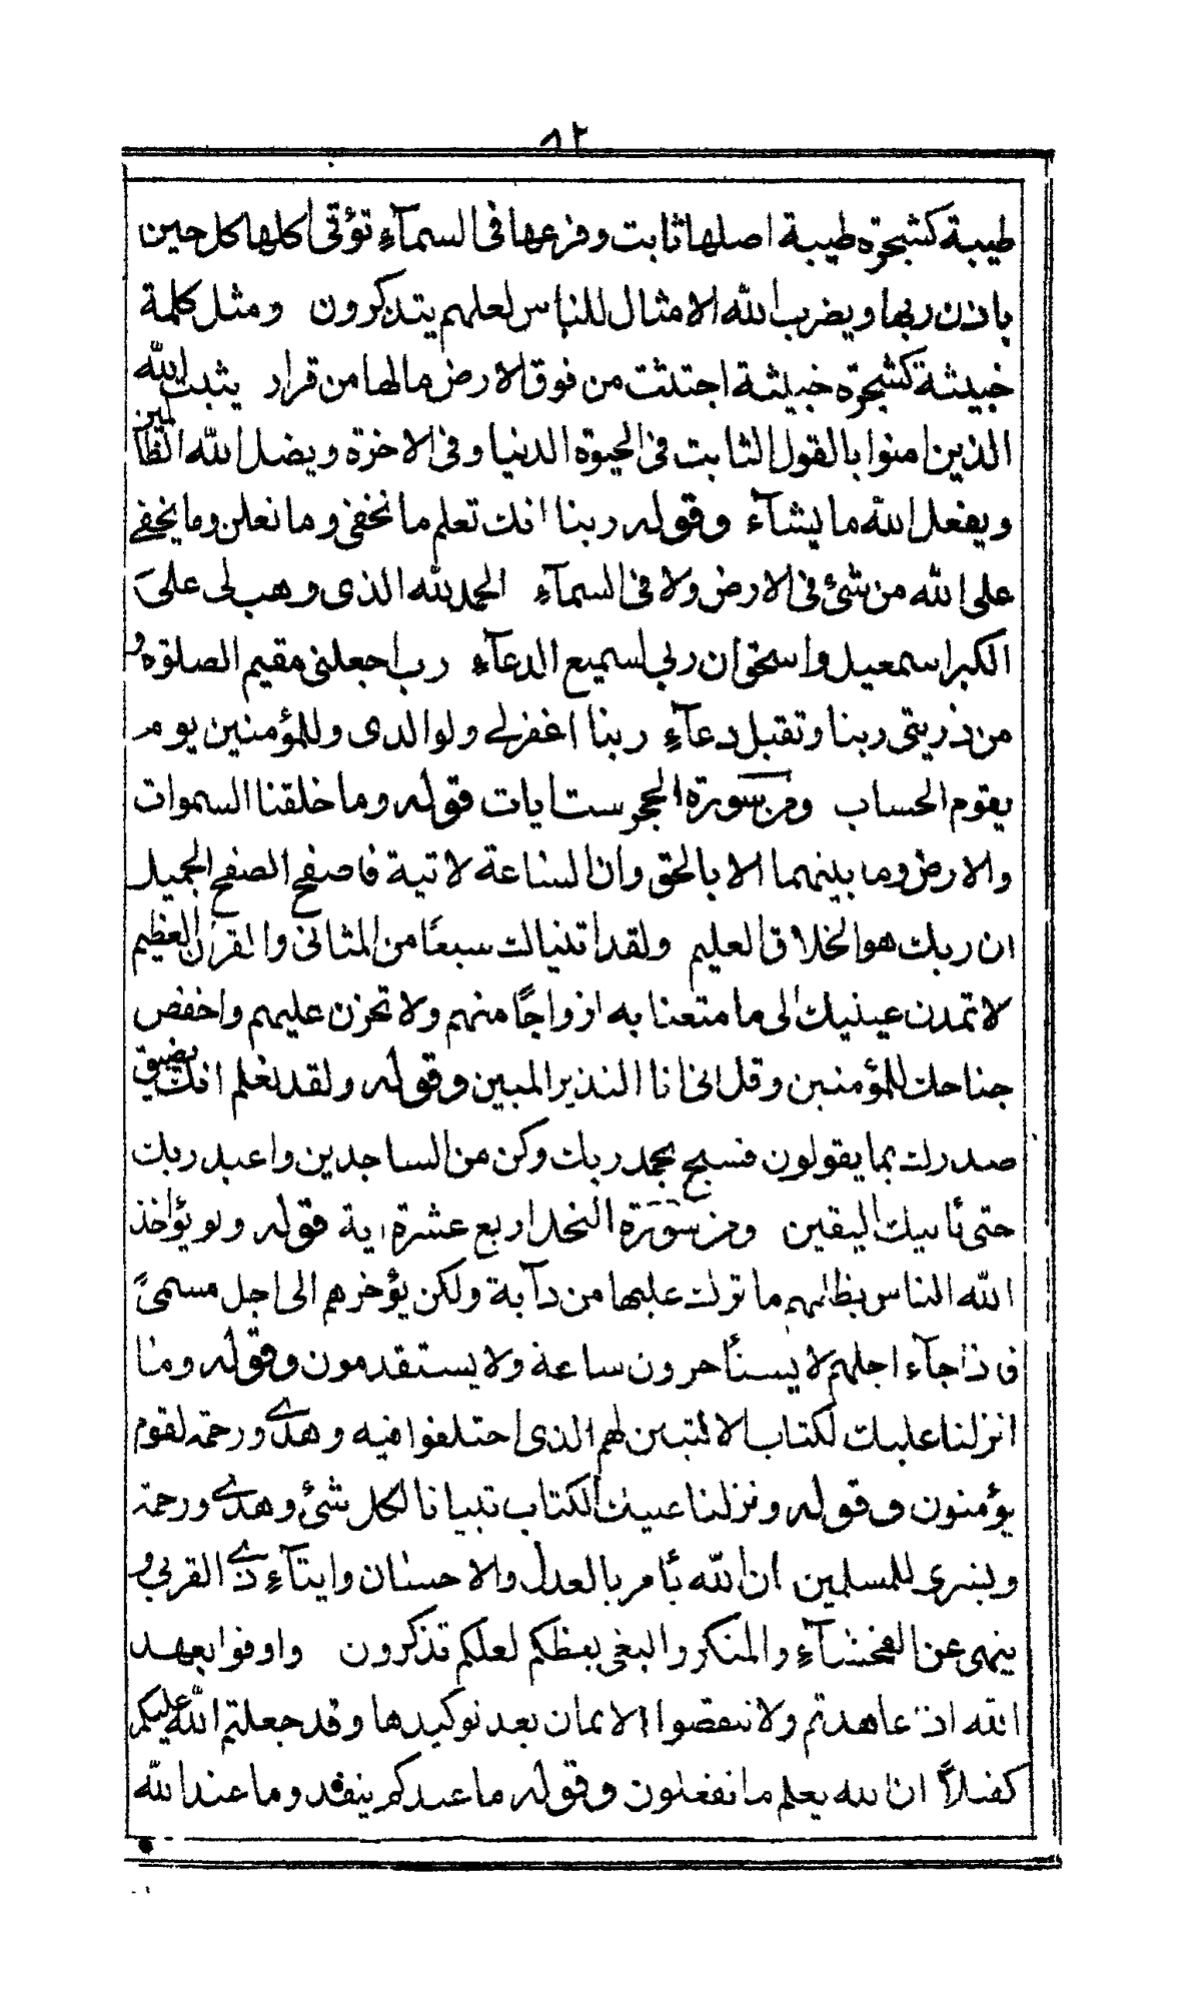 ٨٢
طيبة كشجرة طيبة اصلها ثابت وفرعها فى السمآء تؤتى اكلها كل حين
باذن ربها ويضرب الله الامثال للناس لعلهم يتذكرون ومثل كلمة
خبيثة كشجرة خبيثة اجتثت من فوق الارض مالها من قرار يثبت الله
الذين امنوا بالقول الثابت فى الحيوة الدنيا وفى الاخرة ويضل الله الظالمين
ويفعل الله ما يشآء وقوله ربنا انك تعلم ما نخفى وما نعلن وما يخفى
على الله من شئ فى الارض ولا فى السمآء الحمد لله الذى وهب لى على
الكبر اسمعيل واسحق ان ربى لسميع الدعآء رب اجعلنى مقيم الصلوة و
من ذريتى ربنا وتقبل دعآء ربنا اغفرلى ولوالدى وللمؤمنين يوم
يقوم الحساب ومن سورة الحجر ست ايات قوله وما خلقنا السموات
والارض وما بينهما الا بالحق وان الساعة لاتية فاصفح الصفح الجميل
ان ربك هو الخلاق العليم ولقد اتيناك سبعًا من المثانى والقران العظيم
لا تمدن عينيك الى ما متعنا به ازواجًا منهم ولا تحزن عليهم واخفض
جناحك للمؤمنين وقل انى انا النذير المبين وقوله ولقد نعلم انك يضيق
صدرك بما يقولون فسبح بحمد ربك وكن من الساجدين واعبد ربك
حتى يأتيك اليقين ومن سورة النحل اربع عشرة اية قوله ولو يؤاخذ
الله الناس بظلمهم ما ترك عليها من دآبة ولكن يؤخرهم الى اجل مسمىً
فاذا جآء اجلهم لا يستأخرون ساعة ولا يستقدمون وقوله وما
انزلنا عليك الكتاب الا لتبين لهم الذى اختلفوا فيه وهدى ورحمة لقوم
يؤمنون وقوله ونزلنا عليك الكتاب تبيانا لكل شئ وهدى ورحمة
وبشرى للمسلمين ان الله يأمر بالعدل والاحسان وايتآء ذى القربى و
ينهى عن الفحشآء والمنكر والبغى يعظكم لعلكم تذكرون واوفوا بعهد
الله اذا عاهدتم ولا تنقضوا الايمان بعد توكيدها وقد جعلتم الله عليكم
كفيلاً ان الله يعلم ما تفعلون وقوله ما عندكم ينفد وما عند الله